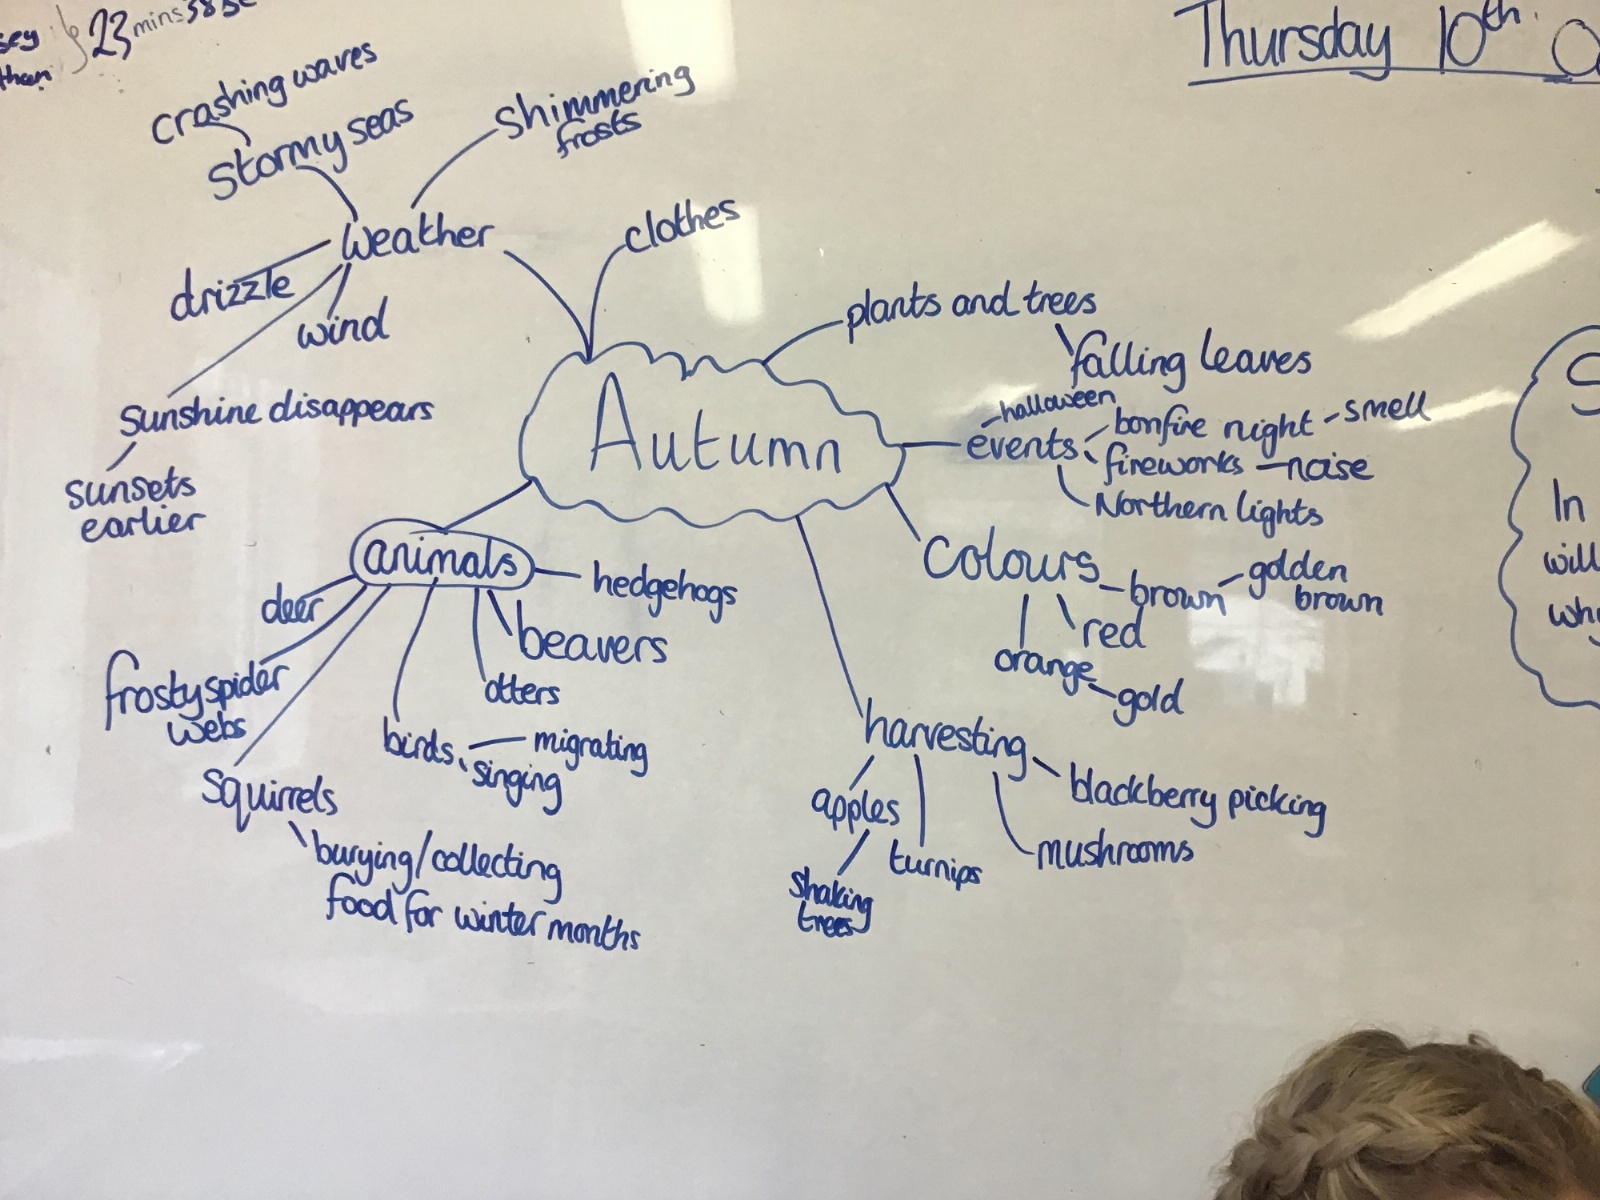 23 mins
Thursday 10th
crashing waves
stormy seas
shimmering
frosts
weather
clothes
drizzle
wind
sunshine disappears
sunsets
earlier
plants and trees
falling leaves
Autumn
halloween
events
bonfire night - smell
fireworks - noise
Northern lights
colours
brown
golden
brown
red
orange
gold
animals
hedgehogs
deer
beavers
frosty spider
webs
otters
birds
migrating
singing
squirrels
burying/collecting
food for winter months
harvesting
apples
shaking
trees
turnips
mushrooms
blackberry picking
In
will